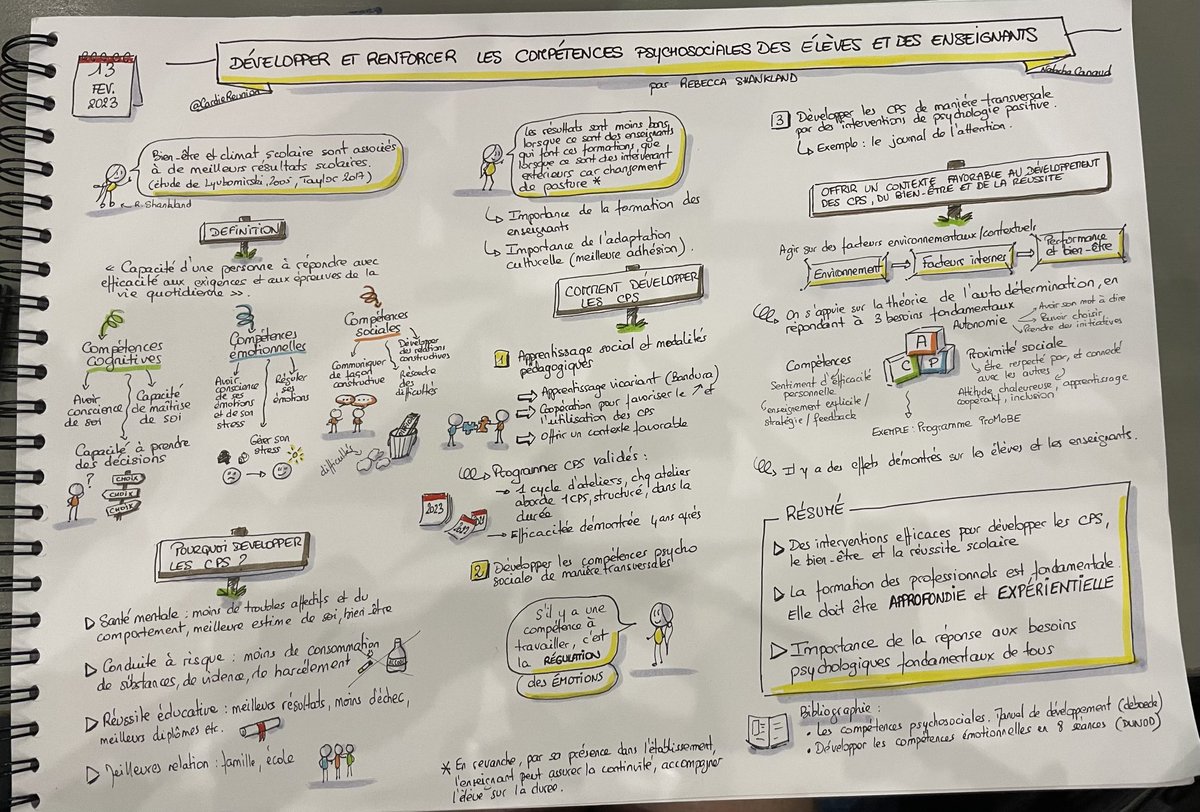 DÉVELOPPER ET RENFORCER LES COMPÉTENCES PSYCHOSOCIALES DES ÉLÈVES ET DES ENSEIGNANTS
par REBECCA SHANKLAND
13
FEV.
2023
@CardieReunion
Natacha Canaud
Bien-être et climat scolaire sont associés
à de meilleurs résultats scolaires.
(étude de Lyubomirski, 2005, Taylor 2017)
R. Shankland
DEFINITION
« Capacité d'une personne à répondre avec
efficacité aux exigences et aux épreuves de la
vie quotidienne »
Compétences
cognitives
Avoir
conscience
de soi
Capacité
de maîtrise
de soi
Capacité à prendre
des décisions
?
CHOIX
CHOIX
CHOIX
Compétences
émotionnelles
Avoir
conscience
de ses
émotions
et de son
stress
Réguler
ses
émotions
Gérer son
stress
Compétences
sociales
Communiquer
de façon
constructive
Développer
des relations
constructives
Résoudre
des
difficultés
difficultés
POURQUOI DEVELOPPER
LES CPS ?
Santé mentale : moins de troubles affectifs et du
comportement, meilleure estime de soi, bien-être
Conduite à risque : moins de consommation
de substances, de violence, de harcèlement
Réussite éducative : meilleurs résultats, moins d'échec,
meilleurs diplômes etc.
Meilleures relation : famille, école
Les résultats sont moins bons,
lorsque ce sont des enseignants
qui font ces formations, que
lorsque ce sont des intervenant
extérieurs car changement
de posture *
Importance de la formation des
enseignants
Importance de l'adaptation
culturelle (meilleure adhésion).
COMMENT DÉVELOPPER
LES CPS
1 Apprentissage social et modalités
pédagogiques
Apprentissage vicariant (Bandura)
Coopération pour favoriser le ↗ et
l'utilisation des CPS
Offrir un contexte favorable
Programmes CPS validés :
→ 1 cycle d'ateliers, chq atelier
aborde 1 CPS, structuré, dans la
durée
→ Efficacitée démontrée 4 ans après
2023
2019
2 Développer les compétences psycho
sociale de manière transversales
S'il y a une
compétence à
travailler, c'est
la RÉGULATION
des ÉMOTIONS
* En revanche, par sa présence dans l'établissement,
l'enseignant peut assurer la continuité, accompagner
l'élève sur la durée.
3 Développer les CPS de manière transversale
par des interventions de psychologie positive.
Exemple : le journal de l'attention.
OFFRIR UN CONTEXTE FAVORABLE AU DÉVELOPPEMENT
DES CPS, DU BIEN-ÊTRE ET DE LA RÉUSSITE
Agir sur des facteurs environnementaux/contextuels
Environnement
Facteurs internes
Performance
et bien-être
On s'appuie sur la théorie de l'autodétermination, en
répondant à 3 besoins fondamentaux
Autonomie
Avoir son mot à dire
Pouvoir choisir,
Prendre des initiatives
A
C P
Compétences
Sentiment d'efficacité
personnelle
enseignement explicite /
stratégie / feedback
Proximité sociale
être respecté par, et connecté
avec les autres
Attitude chaleureuse, apprentissage
coopératif, inclusion
EXEMPLE : Programme ProMoBE
Il y a des effets démontrés sur les élèves et les enseignants.
RÉSUMÉ
Des interventions efficaces pour développer les CPS,
le bien-être et la réussite scolaire
La formation des professionnels est fondamentale.
Elle doit être APPROFONDIE et EXPÉRIENTIELLE
Importance de la réponse aux besoins
psychologiques fondamentaux de tous
Bibliographie :
• Les compétences psychosociales. Manuel de développement (deboeck)
• Développer les compétences émotionnelles en 8 séances (DUNOD)